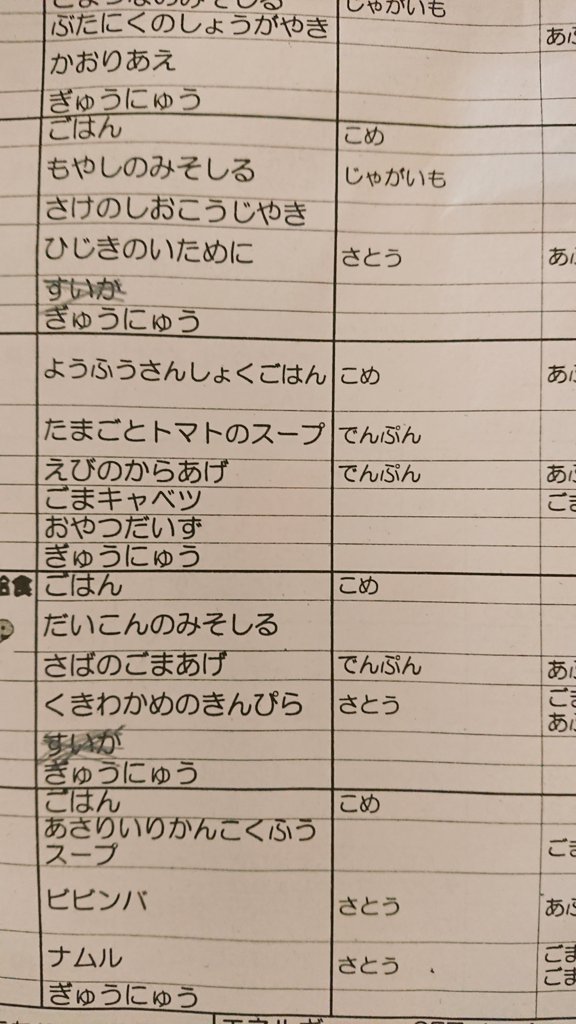 じゃがいも
ぶたにくのしょうがやき
かおりあえ
ぎゅうにゅう
ごはん こめ
もやしのみそしる じゃがいも
さけのしおこうじやき
ひじきのいために さとう
すいか
ぎゅうにゅう
ようふうさんしょくごはん こめ
たまごとトマトのスープ でんぷん
えびのからあげ でんぷん
ごまキャベツ
おやつだいず
ぎゅうにゅう
給食 ごはん こめ
だいこんのみそしる
さばのごまあげ でんぷん
くきわかめのきんぴら さとう
すいか
ぎゅうにゅう
ごはん こめ
あさりいりかんこくふう
スープ
ビビンバ さとう
ナムル さとう
ぎゅうにゅう